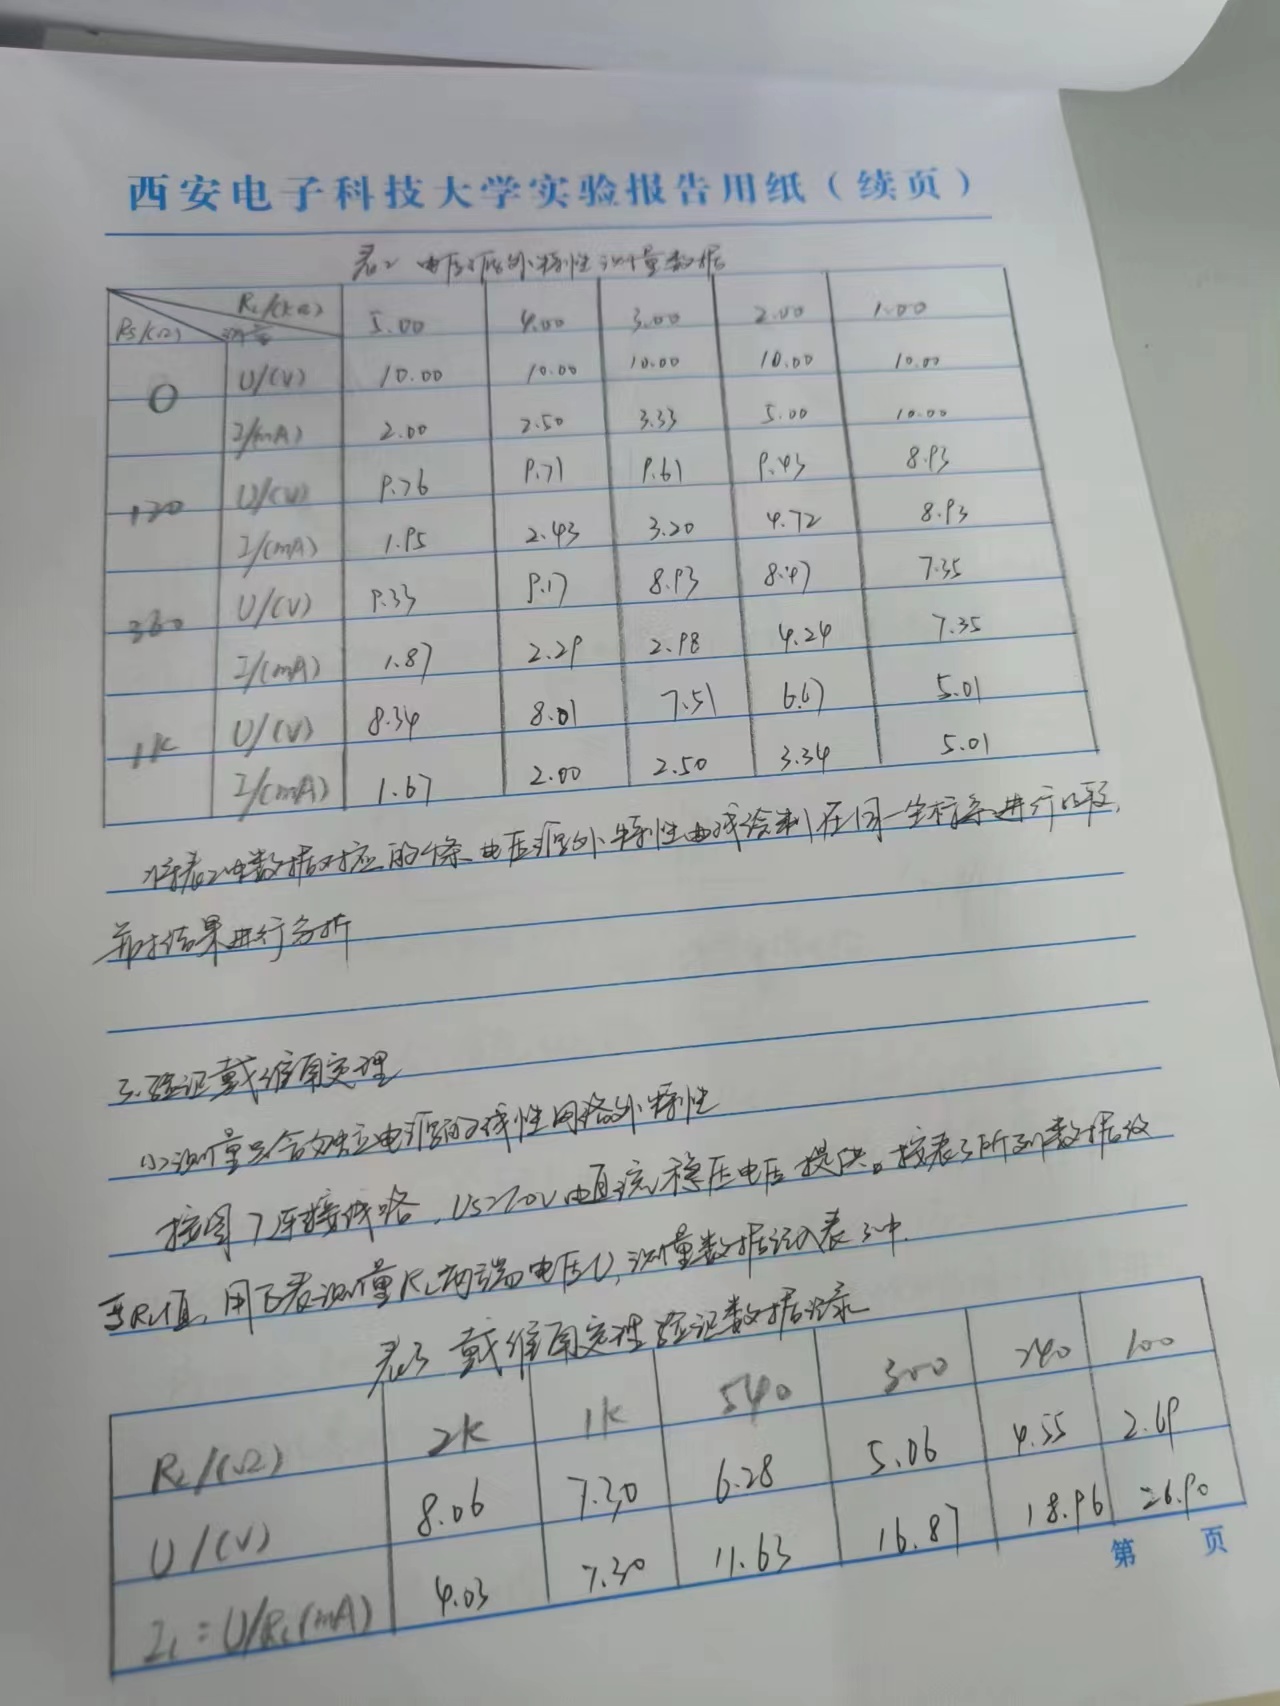 西安电子科技大学实验报告用纸（续页）
表2 电压源外特性测量数据
RL/(kΩ) 5.00 4.00 3.00 2.00 1.00
RS/(Ω) 测量
0 U/(V) 10.00 10.00 10.00 10.00 10.00
I/(mA) 2.00 2.50 3.33 5.00 10.00
120 U/(V) 9.76 9.71 9.61 9.43 8.93
I/(mA) 1.95 2.43 3.20 4.72 8.93
360 U/(V) 9.33 9.17 8.93 8.47 7.35
I/(mA) 1.87 2.29 2.98 4.24 7.35
1K U/(V) 8.34 8.01 7.51 6.67 5.01
I/(mA) 1.67 2.00 2.50 3.34 5.01
将表2中数据对应的4条电压源外特性曲线绘制在同一坐标系进行比较，
并对结果进行分析
3.验证戴维南定理
(1)测量只含独立电源的线性网络外特性
按图7连接线路，US=10V由直流稳压电压提供。按表3所列数据改
变RL值，用V表测量RL两端电压U，测量数据记入表3中.
表3 戴维南定理验证数据记录
RL/(Ω) 2K 1K 540 300 240 100
U/(V) 8.06 7.30 6.28 5.06 4.55 2.69
IL=U/RL(mA) 4.03 7.30 11.63 16.87 18.96 26.90
第 页